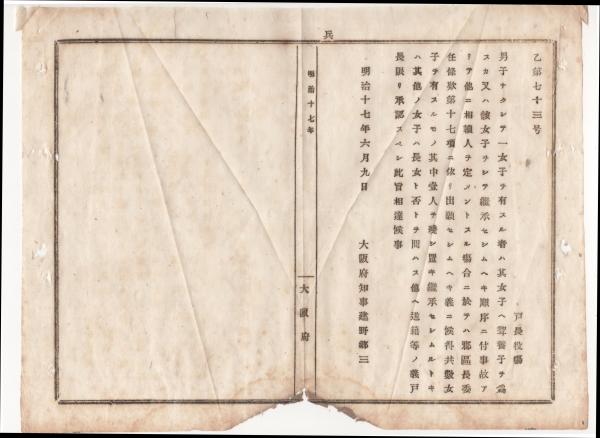 兵
乙第七十三号
戸長役場
男子ナクシテ一女子ヲ有スル者ハ其女子ヘ聟養子ヲ為
スカ又ハ該女子ヲシテ継承セシムヘキ順序ニ付事故ア
リテ他ニ相続人ヲ定メントスル場合ニ於テハ郡区長委
任条款第十七項ニ依リ出願セシムヘキ義ニ候得共数女
子ヲ有スルモノ其中壹人ヲ残シ置キ継承セシムルトキ
ハ其他ノ女子ハ長女ト否トヲ問ハス他ヘ送籍等ノ義戸
長限リ承認スベシ此旨相達候事
明治十七年六月九日
大阪府知事建野郷三
明治十七年
大阪府